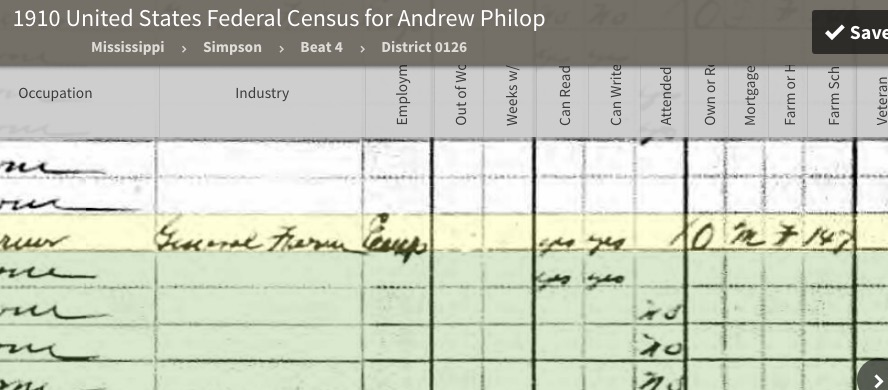 1910 United States Federal Census for Andrew Philop
Mississippi › Simpson › Beat 4 › District 0126
✔ Save
Occupation Industry Employm Out of Wo Weeks w/ Can Read Can Write Attended Own or Re Mortgage Farm or H Farm Sch Veteran
one
one
rmer General Farm Emp yes yes O M F 147
one yes yes
one no
one no
one no